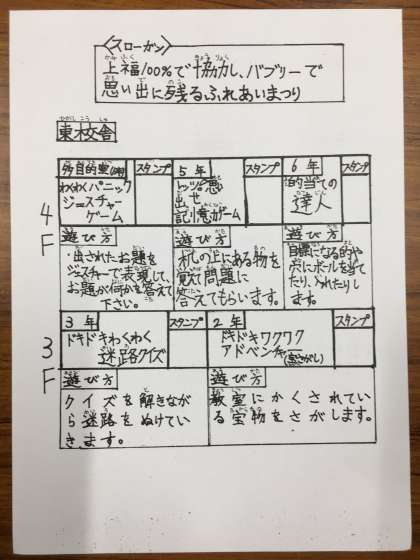 〈スローガン〉
上福100%で協力し、バブリーで
思い出に残るふれあいまつり
東校舎
4F
多目的室
スタンプ
わくわくパニック
ジェスチャー
ゲーム
遊び方
・出されたお題を
ジェスチャーで表現して、
お題が何かを答えて
下さい。
5年
スタンプ
レッツ思い
出せ
記憶力ゲーム
遊び方
机の上にある物を
覚えて問題に
答えてもらいます。
6年
スタンプ
的当ての
達人
遊び方
自標になる的や
穴にボールを当て
たり、入れたりし
ます。
3F
3年
スタンプ
ドキドキわくわく
迷路クイズ
遊び方
クイズを解きなが
ら迷路をぬけてい
きます。
2年
スタンプ
ドキドキワクワク
アドベンチャー
(宝さがし)
遊び方
教室にかくされてい
る宝物をさがします。